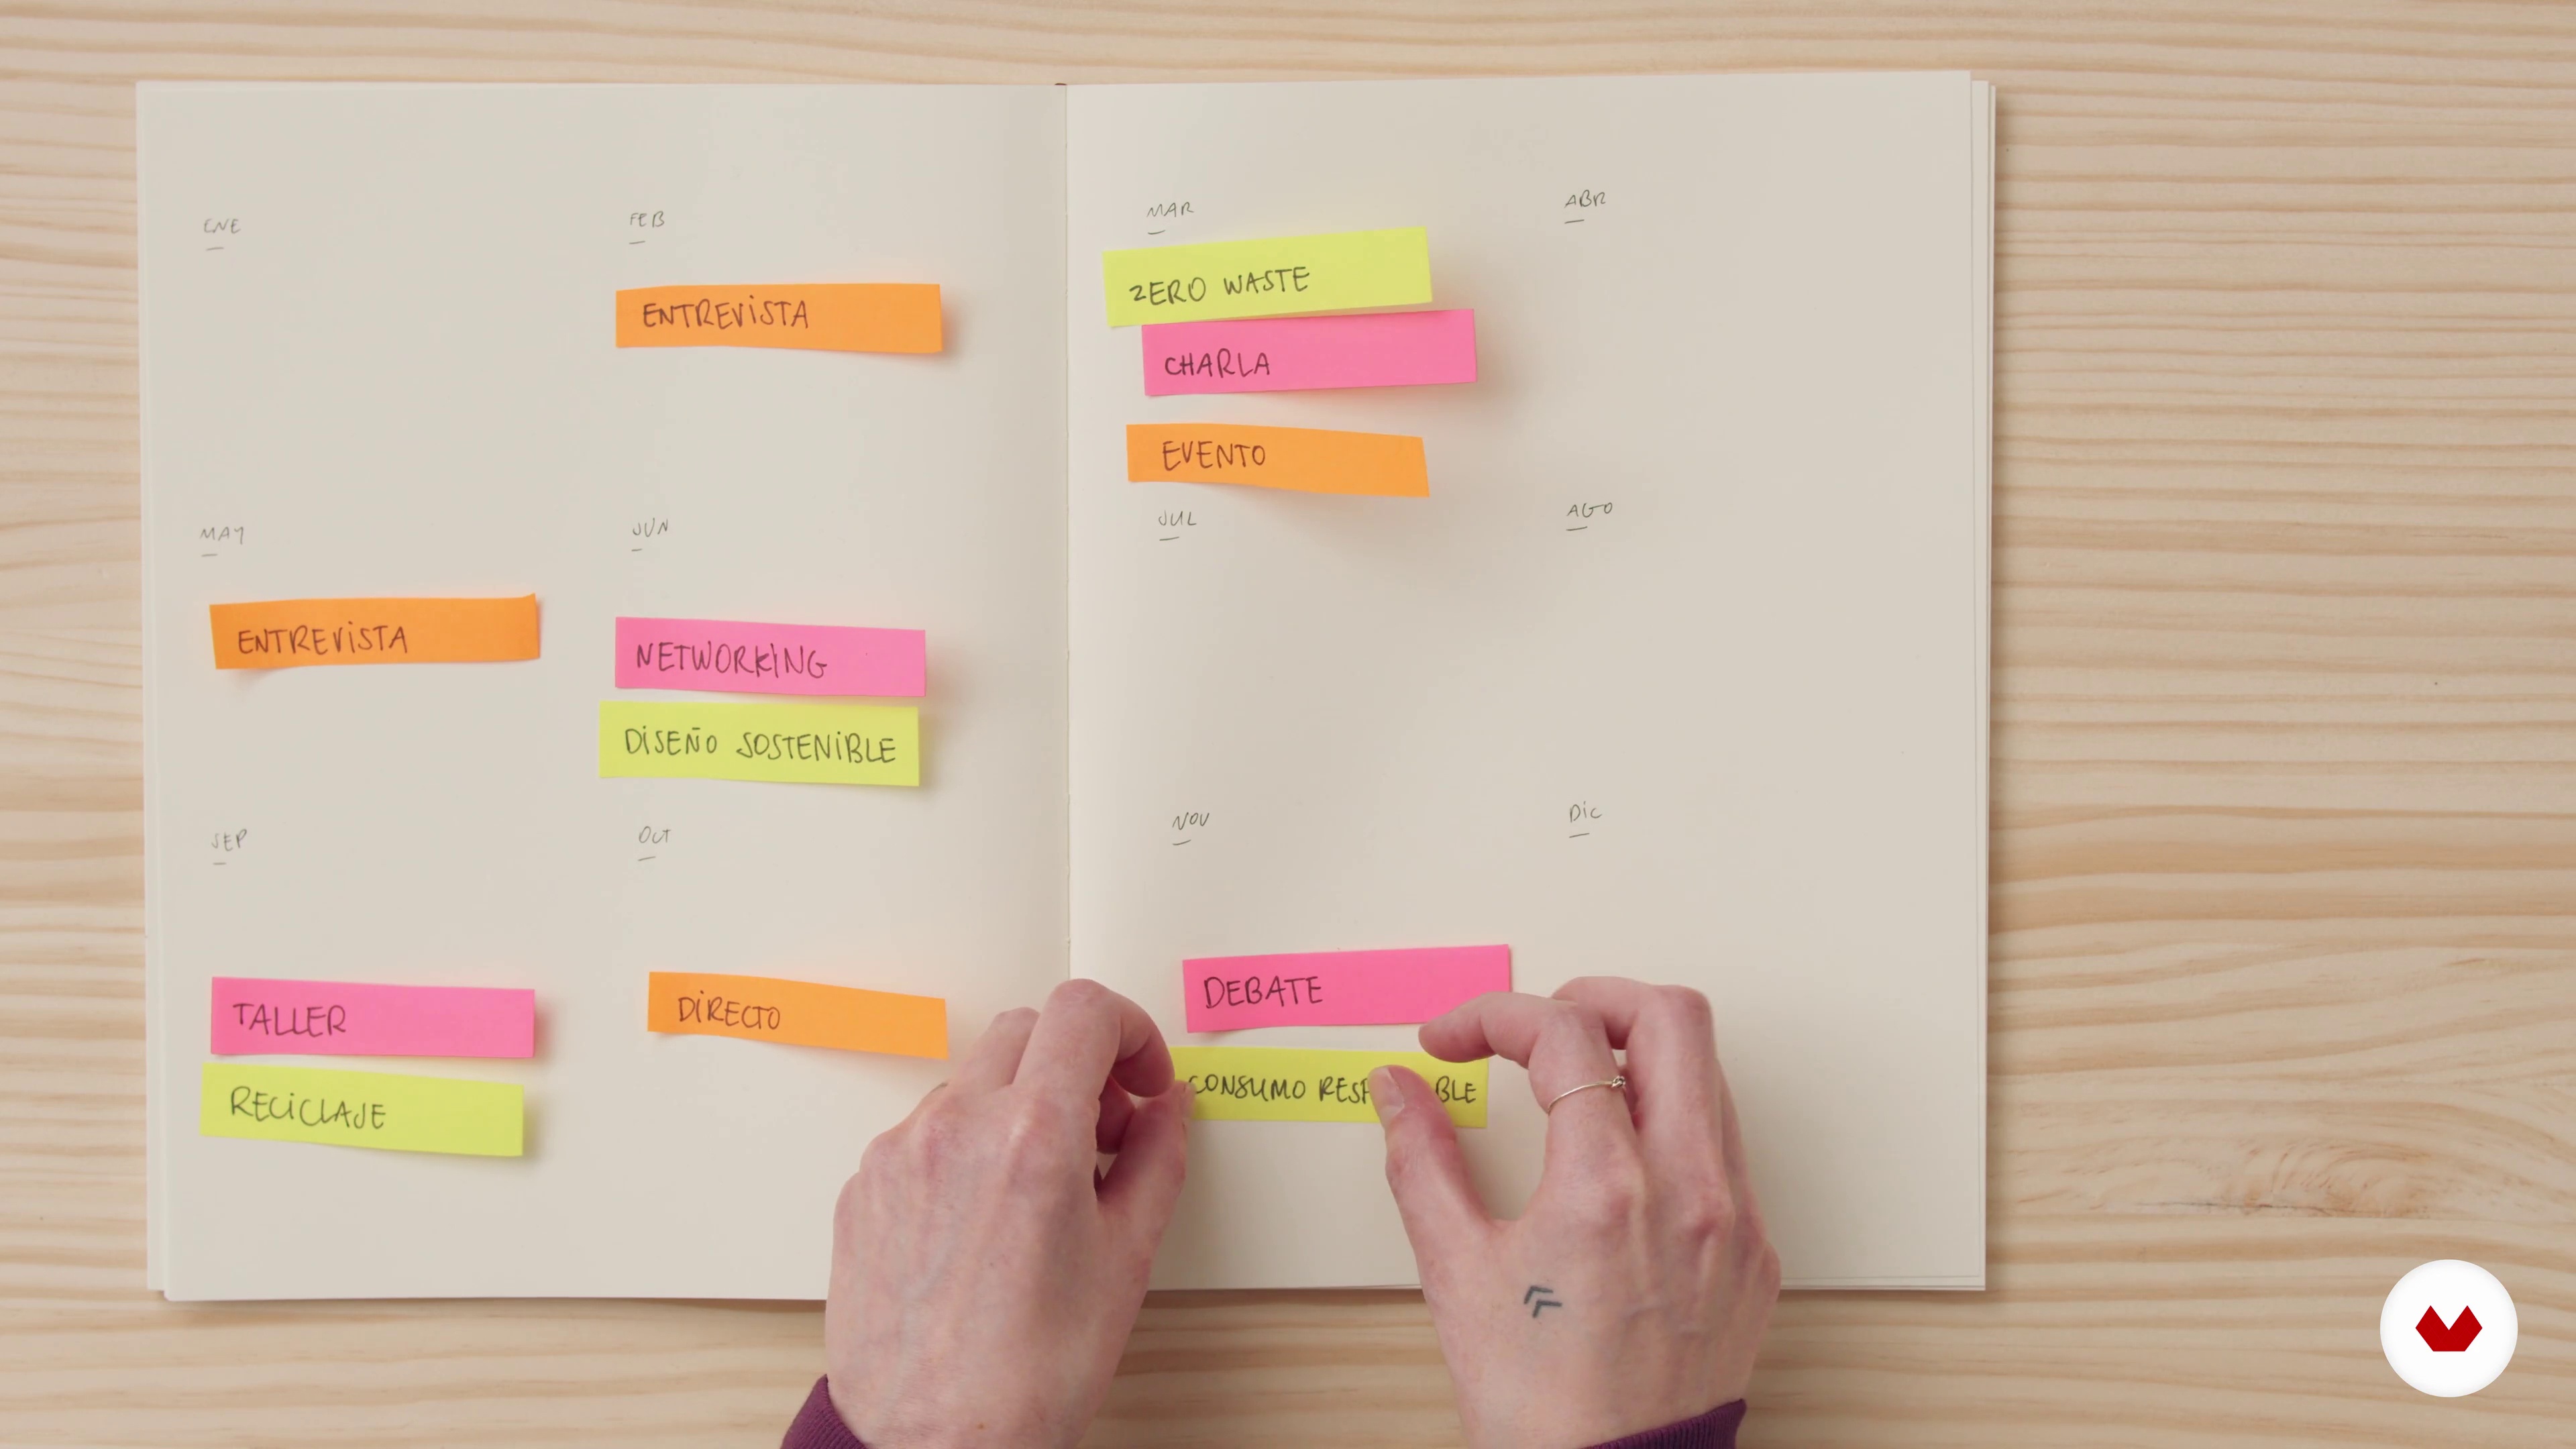 ENE
FEB
MAR
ABR
ENTREVISTA
ZERO WASTE
CHARLA
EVENTO
MAY
JUN
JUL
AGO
ENTREVISTA
NETWORKING
DISEÑO SOSTENIBLE
SEP
OCT
NOV
DIC
TALLER
RECICLAJE
DIRECTO
DEBATE
CONSUMO